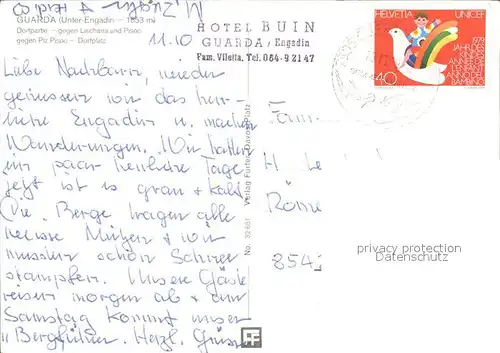 GUARDA (Unter Engadin — 1653 m)
Dorfpartie — gegen Lischana und Pisoc
gegen Piz Pisoc — Dorfplatz
11.10
HOTEL BUIN
GUARDA, Engadin
Fam. Viletta, Tel. 084-9 21 47
HELVETIA
UNICEF
1979
JAHR DES KINDES
ANNEE DE L'ENFANT
ANNO DEL BAMBINO
40
Liebe Nachbarn, wieder
geniessen wir das herr-
liche Engadin u. machen
Wanderungen. Wir hatten
ein paar herrliche Tage
jetzt ist es grau + kalt.
Die Berge tragen alle
weisse Mützen + wir
mussten schon Schnee
stampfen. Unsere Gäste
reisen morgen ab + am
Samstag kommt unser
"Bergführer. Herzl. Grüsse
Verlag Furter, Davos-Platz
No. 32 651
Fam.
H
Röme
854
privacy protection
Datenschutz